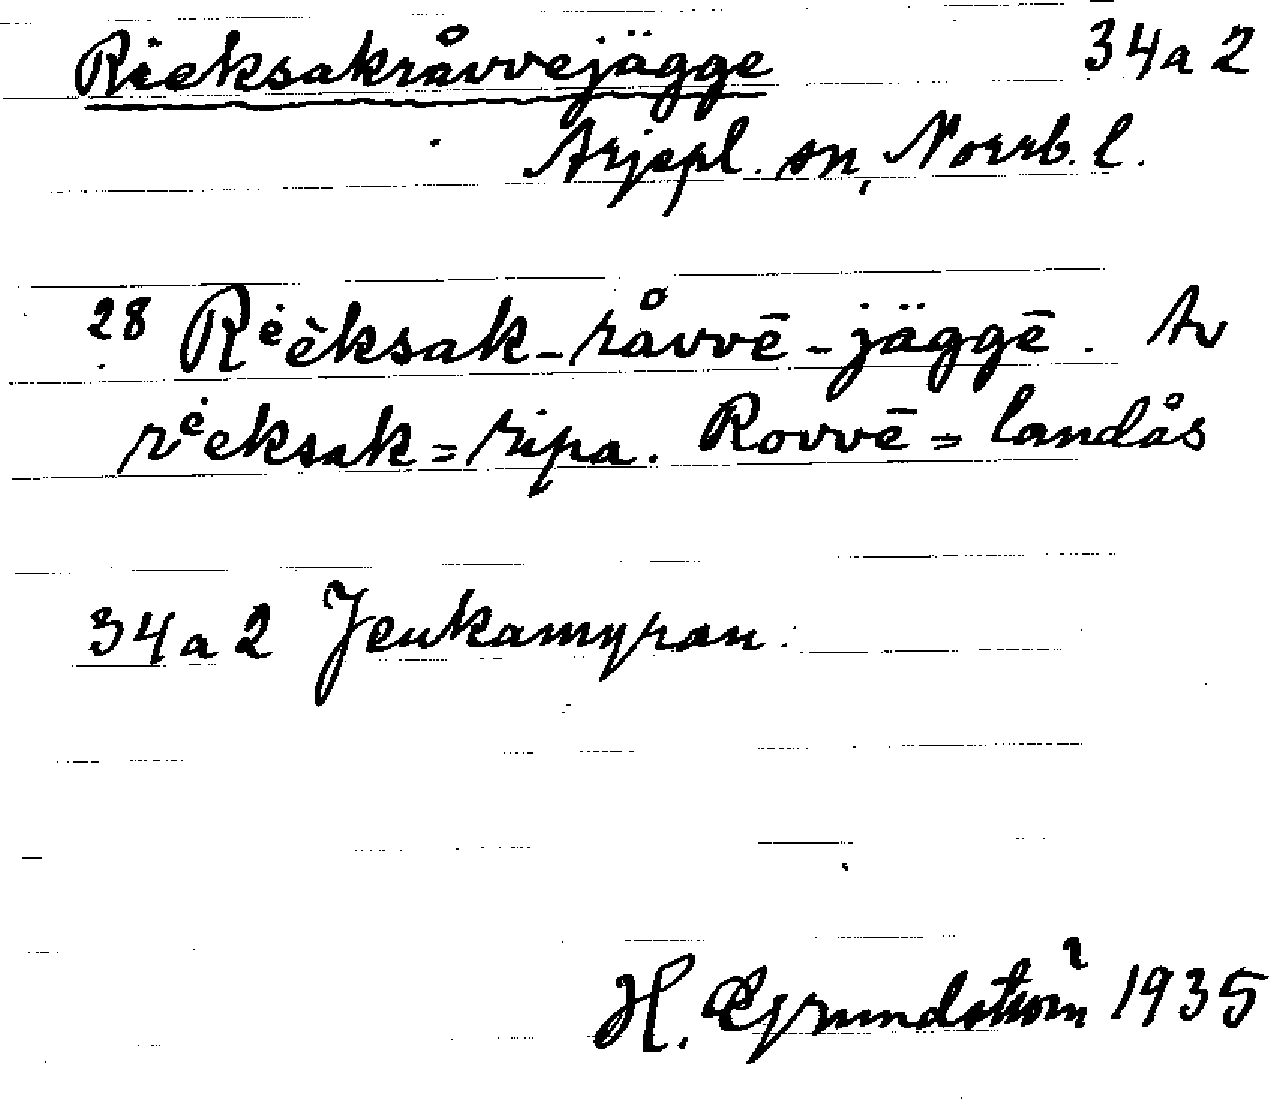 Rieksakråvvejägge 34a2
Arjepl. sn, Norrb. l.
28 Rėèksak-råvvē-jäggē. Av
rėeksak = ripa. Rovvē = landås
34a2 Jeukamyran.
H. Grundström 1935